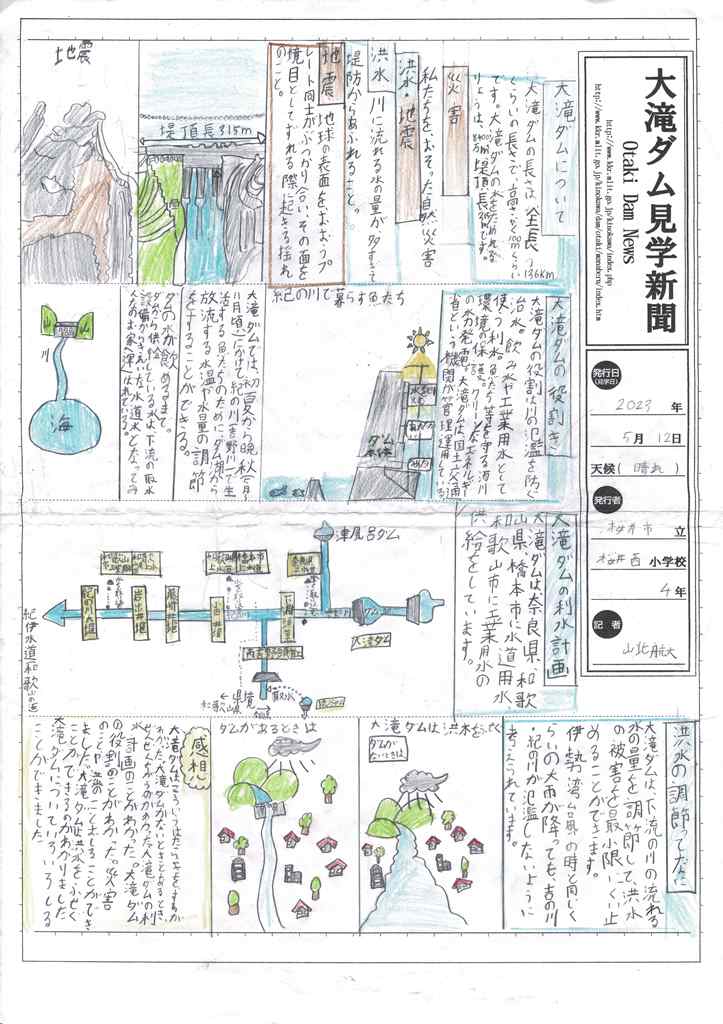 大滝ダム見学新聞
Otaki Dam News
http://www.kkr.mlit.go.jp/kinokawa/index.php
発行日
(見学日)
2023年
5月12日
天候(晴れ)
発行者
桜井市立
桜井西小学校
4年
記者
大滝ダムについて
大滝ダムの長さは(全長)
136km
くらいの長さで、高さは、100mくらい
です。大滝ダムの水をためれる
りょうは、8400万㎥堤頂長315mです。
災害
私たちを、おそった自然災害
洪水・地震
洪水 川に流れる水の量が多すぎて
堤防からあふれること。
地震 地球の表面をおおうプ
レート同士がぶつかり合い、その面を
境目としてずれる際に起きる揺れ
のこと。
堤頂長315m
地震
大滝ダムの役割き
大滝ダムの役割は川の氾濫を防ぐ
治水。飲み水や工業用水として
使う利水魚たち等を守る河川
環境の保護。クリーンなエネルギー
の水力発電。大滝ダムは国土交通
省という機関が管理運用している
ダム
本体
紀の川で暮らす魚たち
大滝ダムでは、初夏から晩秋(4月〜
11月頃)にかけて、紀の川(吉野川)で生
活する魚たちのために、ダム湖から
放流する水温や水量の調節
をすることができる。
ダムの水が飲めるまで。
ダムから供給している水は、下流の取水
設備からえいた水道水となってみ
んなのお家き運ばれている。
山
山
川
海
大滝ダムの利水計画
大滝ダムは、奈良県、和歌
山県、橋本市に水道用水
和歌山市に工業用水の
供給をしています。
津風呂ダム
大滝ダム
下渕頭首工
西吉野頭首工
取水
県境
和歌山県
奈良県
小田井堰
藤崎井堰
岩出井堰
紀の川大堰
紀伊水道(和歌山の海)
洪水の調節ってなに
大滝ダムは、下流の川の流れる
水の量を調節して、洪水
の被害を最小限いくい止
めることができます。
伊勢湾台風の時と同じく
らいの大雨が降っても、吉の川
・紀の川が氾濫しないように
考えられています。
大滝ダムは洪水をふせぐ
ダムが
ないときは
ダムがあるときは
感想
大滝ダムはこういうはたらきをするか
わかった。大滝ダムがないときとあるときは
ぜんぜんちがうのがわかった大滝ダムの利
水計画のことがわかった。大滝ダム
の役割のことがわかった。災害
のことや洪水のことをしることができ
ました。大滝ダムは洪水をふせぐ
ことができるのがわかりました
大滝ダムについていろいろしる
ことができました